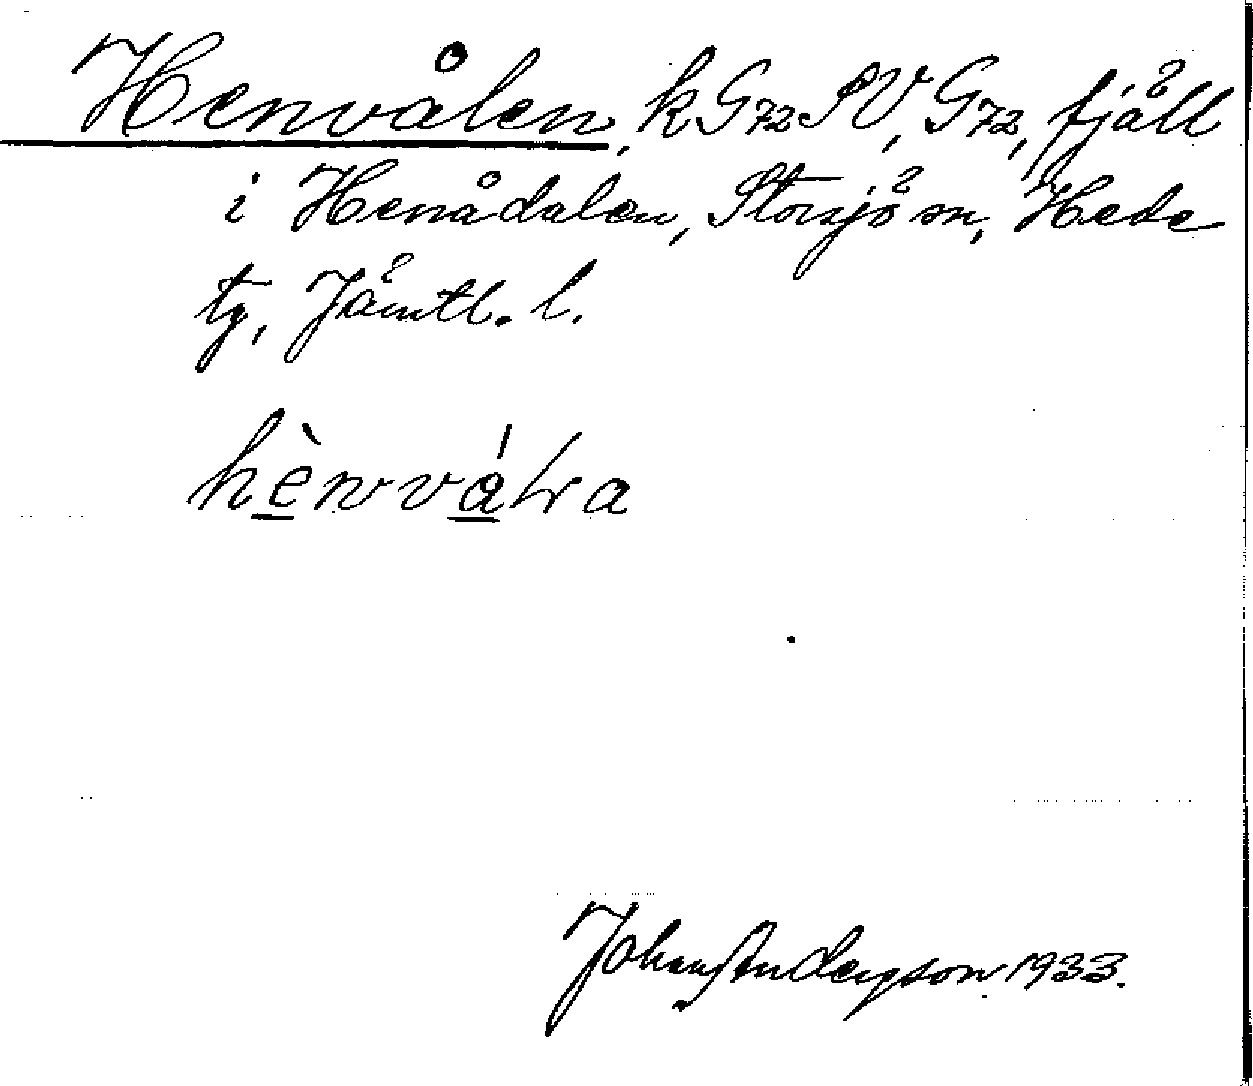 Henvålen, k G72 SV, G72, fjäll
i Henådalen, Storsjö sn, Hede
tg, Jämtl. l.
hènvála
Johan Anderson 1933.